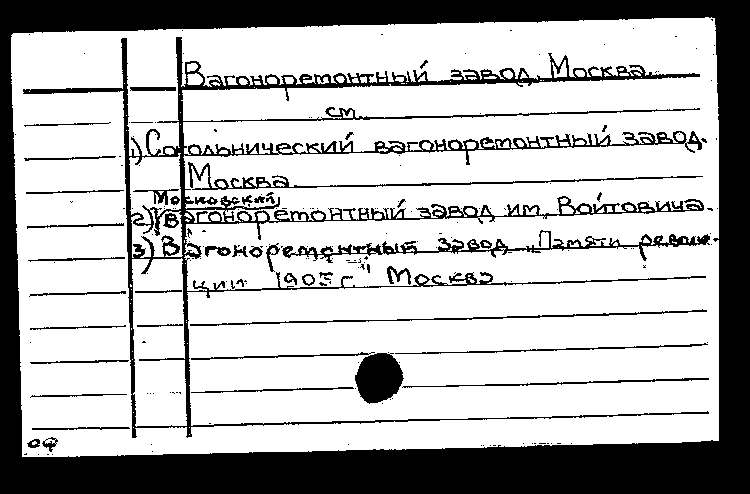 Вагоноремонтный завод. Москва.
см.
1) Сокольнический вагоноремонтный завод.
Москва.
Московский
2) вагоноремонтный завод им. Войтовича.
3) Вагоноремонтный завод „Памяти револю-
ции 1905 г." Москва
оф